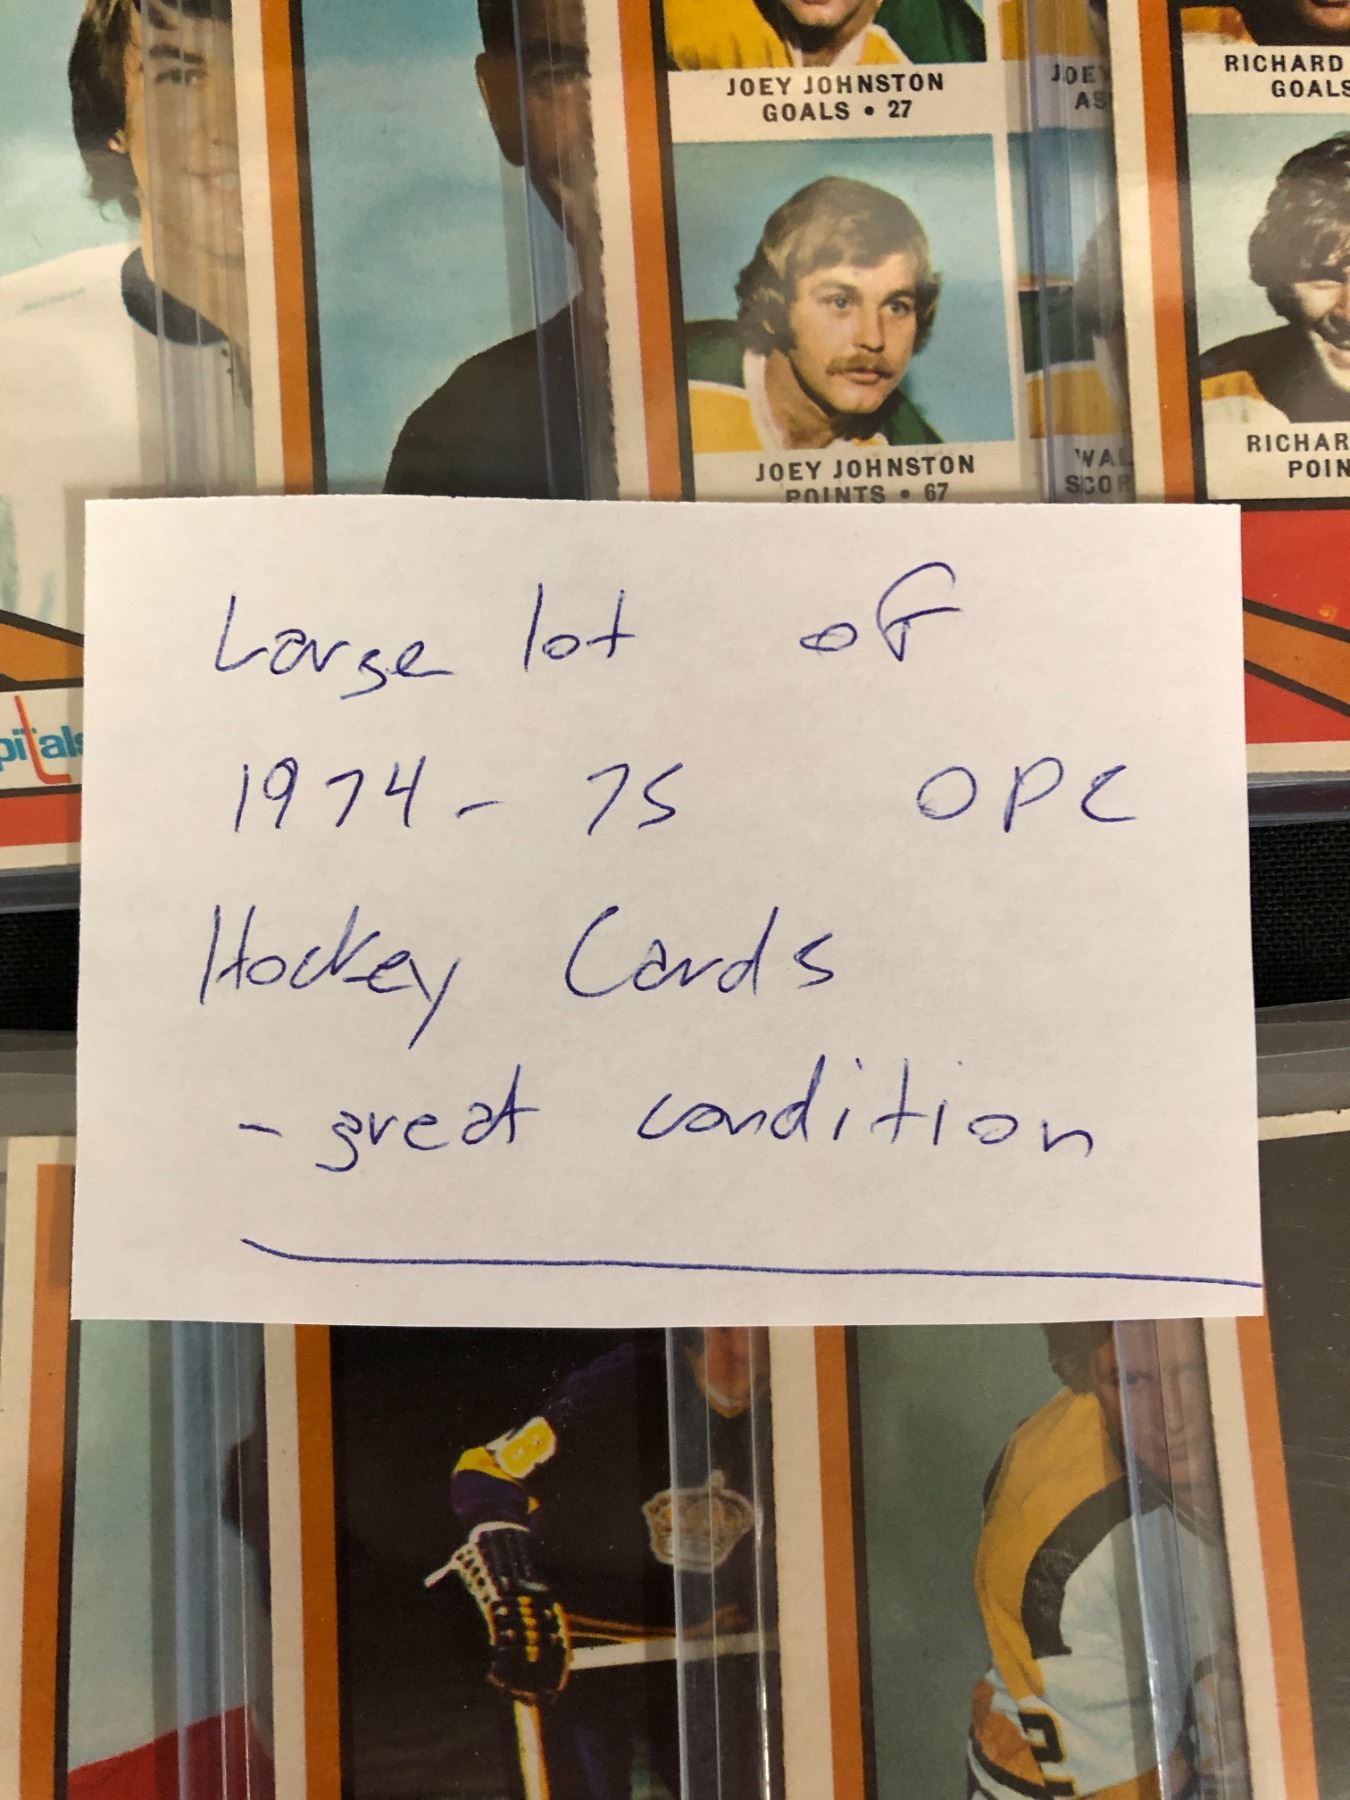 JOEY JOHNSTON
GOALS • 27
JOE
AS
RICHARD
GOALS
JOEY JOHNSTON
POINTS • 67
WAL
SCOR
RICHAR
POIN
pitals
Large lot of
1974-75 OPC
Hockey Cards
- great condition
2